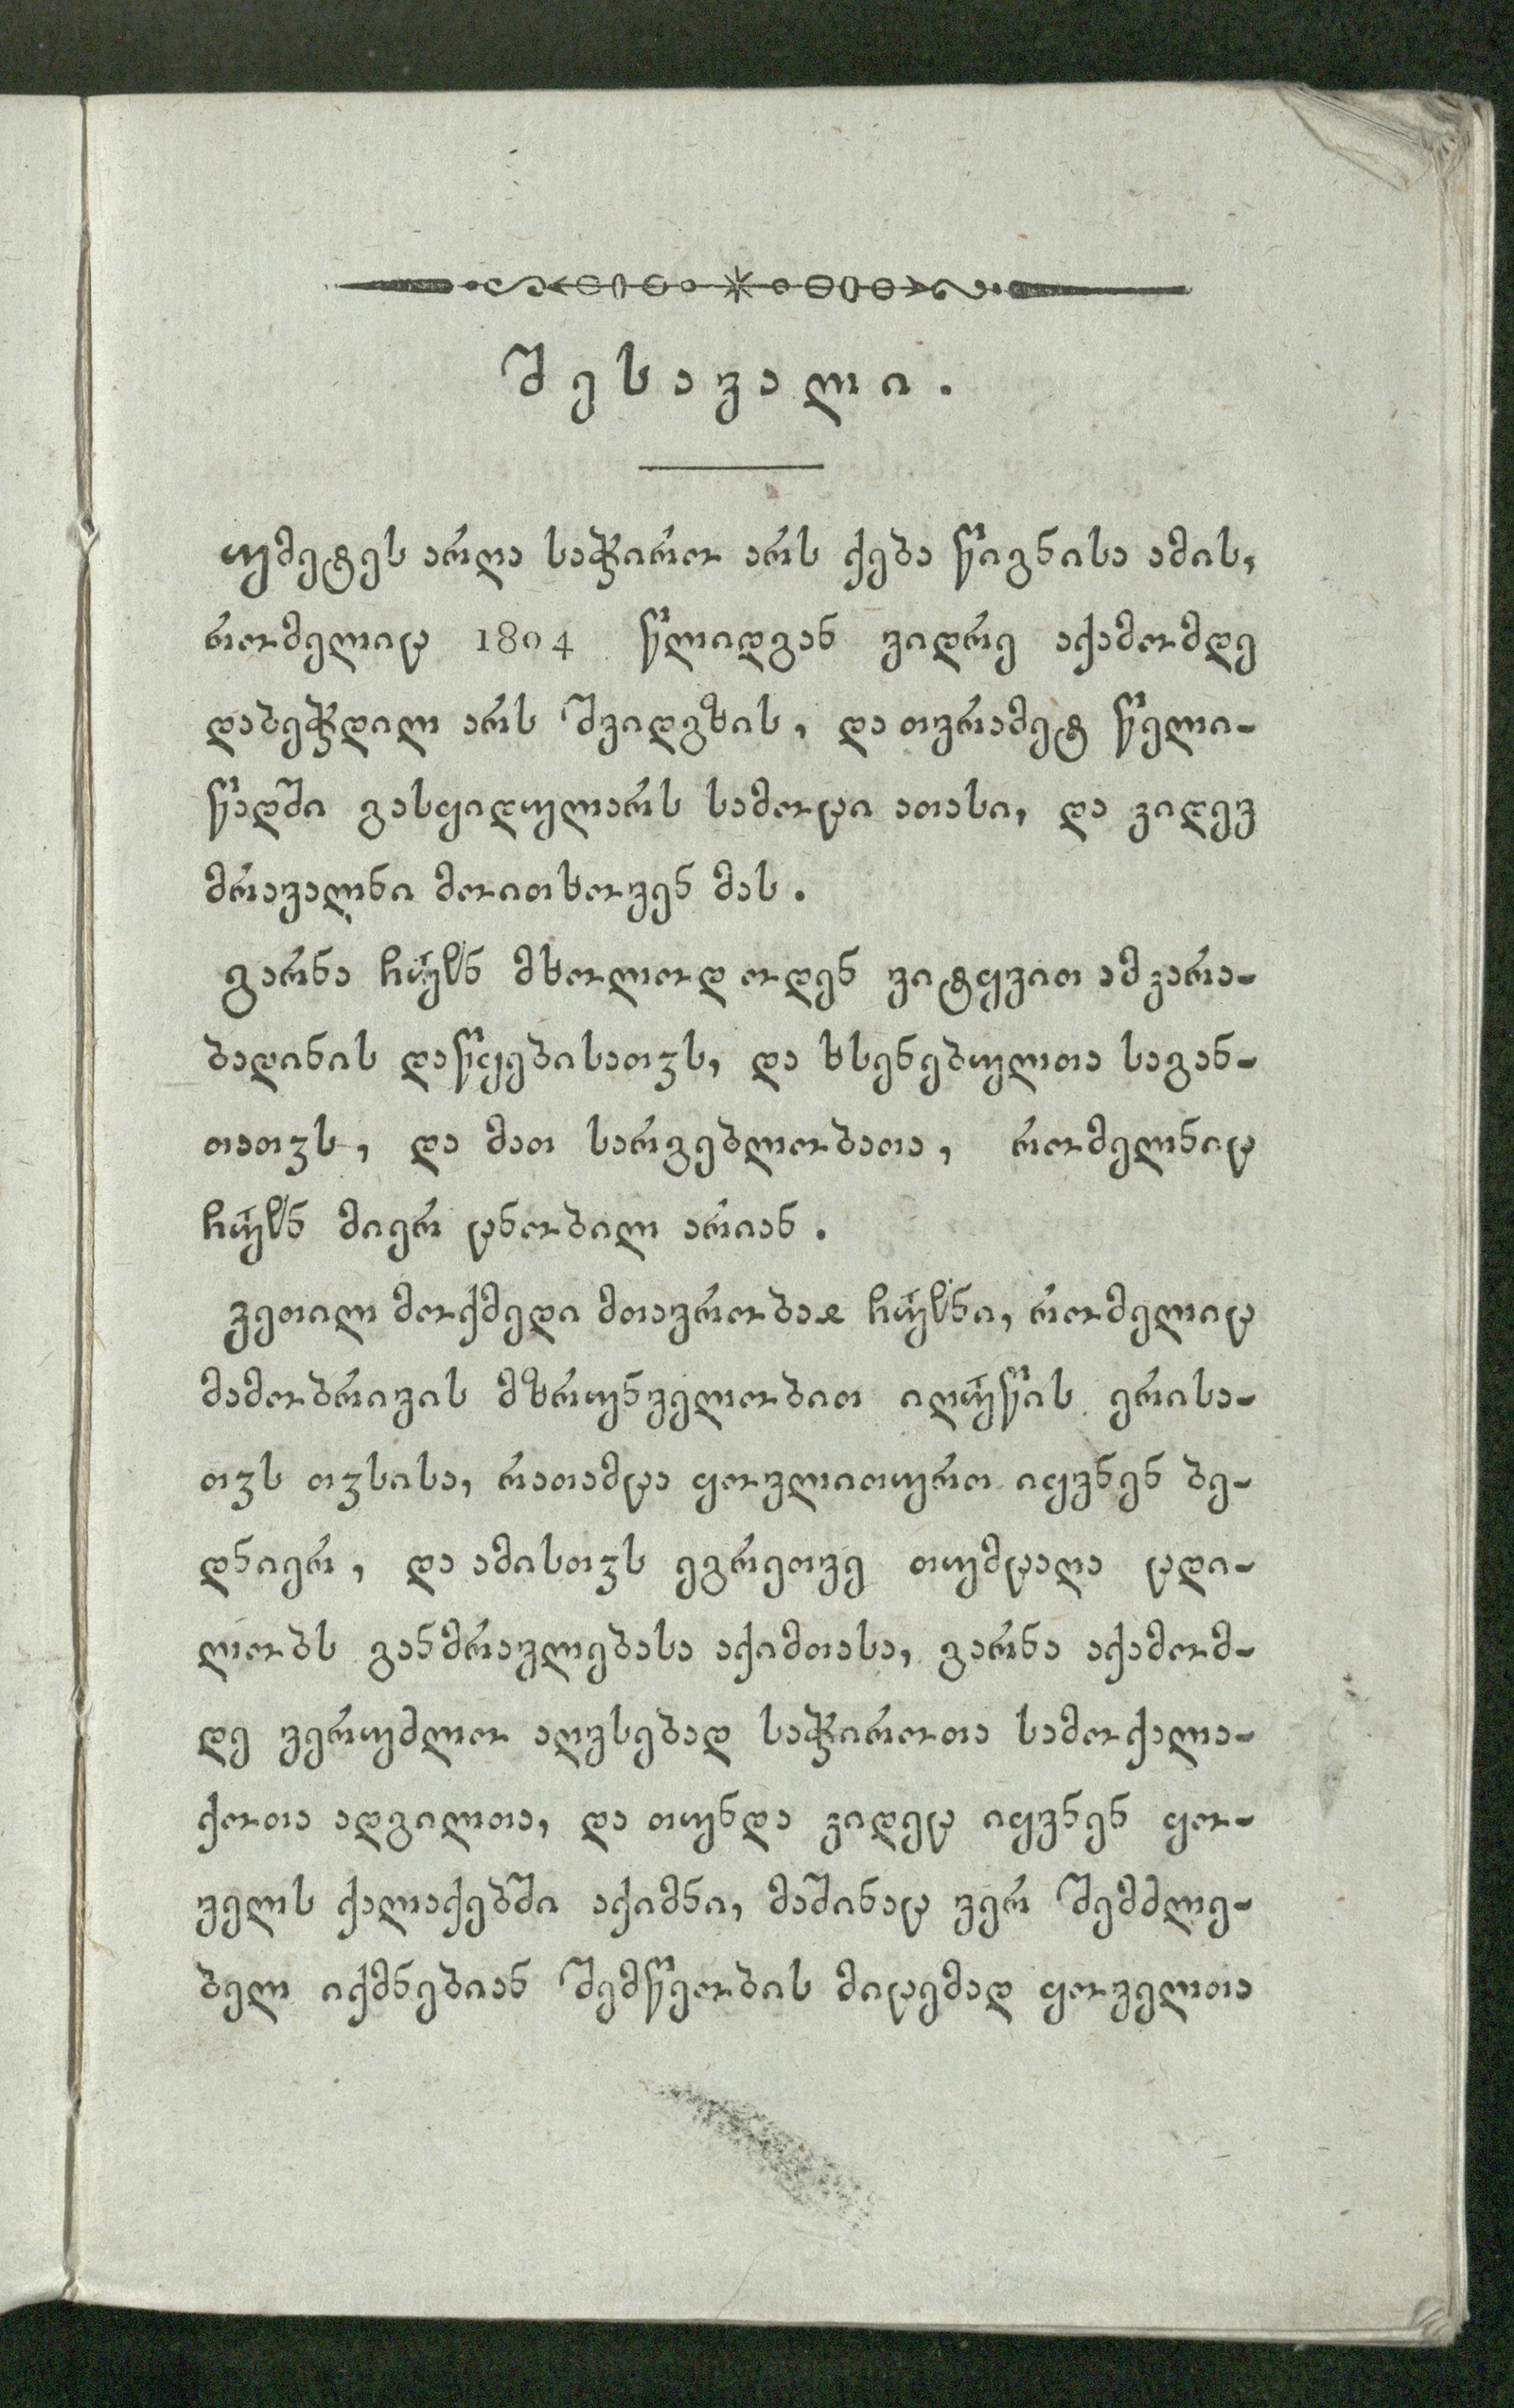 შესავალი.
უმეტეს არღა საჭირო არს ქება წიგნისა ამის,
რომელიც 1804 წლიდგან ვიდრე აქამომდე
დაბეჭდილ არს შვიდგზის, და თვრამეტ წელი-
წადში გასყიდულარს სამოცი ათასი, და კიდევ
მრავალნი მოითხოვენ მას.
გარნა ჩუჱნ მხოლოდ ოდენ ვიტყვით ამ კარა-
ბადინის დაწყებისათჳს, და ხსენებულთა საგან-
თათჳს, და მათ სარგებლობათა, რომელნიც
ჩუჱნ მიერ ცნობილ არიან.
კეთილ მოქმედი მთავრობაჲ ჩუჱნი, რომელიც
მამობრივის მზრუნველობით იღუწის ერისა-
თჳს თჳსისა, რათამცა ყოვლითურთ იყვნენ ბე-
დნიერ, და ამისთჳს ეგრეთვე თუმცაღა ცდი-
ლობს განმრავლებასა აქიმთასა, გარნა აქამომ-
დე ვერუძლო აღვსებად საჭიროთა სამოქალა-
ქოთა ადგილთა, და თუნდა კიდეც იყვნენ ყო-
ველს ქალაქებში აქიმნი, მაშინაც ვერ შემძლე-
ბელ იქმნებიან შემწეობის მიცემად ყოველთა